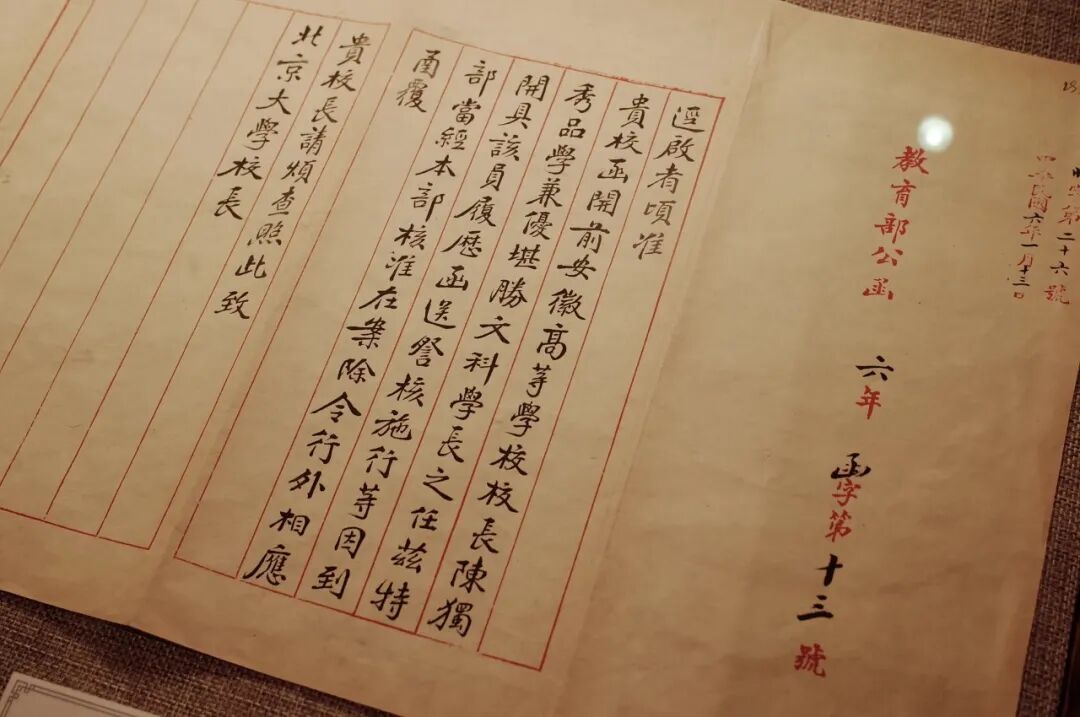 字第二十六號
中華民國六年一月十三日
教育部公函 六年 函字第十三號
逕啟者頃准
貴校函開前安徽高等學校校長陳獨
秀品學兼優堪勝文科學長之任茲特
開具該員履歷函送詧核施行等因到
部當經本部核准在案除令行外相應
函覆
貴校長請煩查照此致
北京大學校長